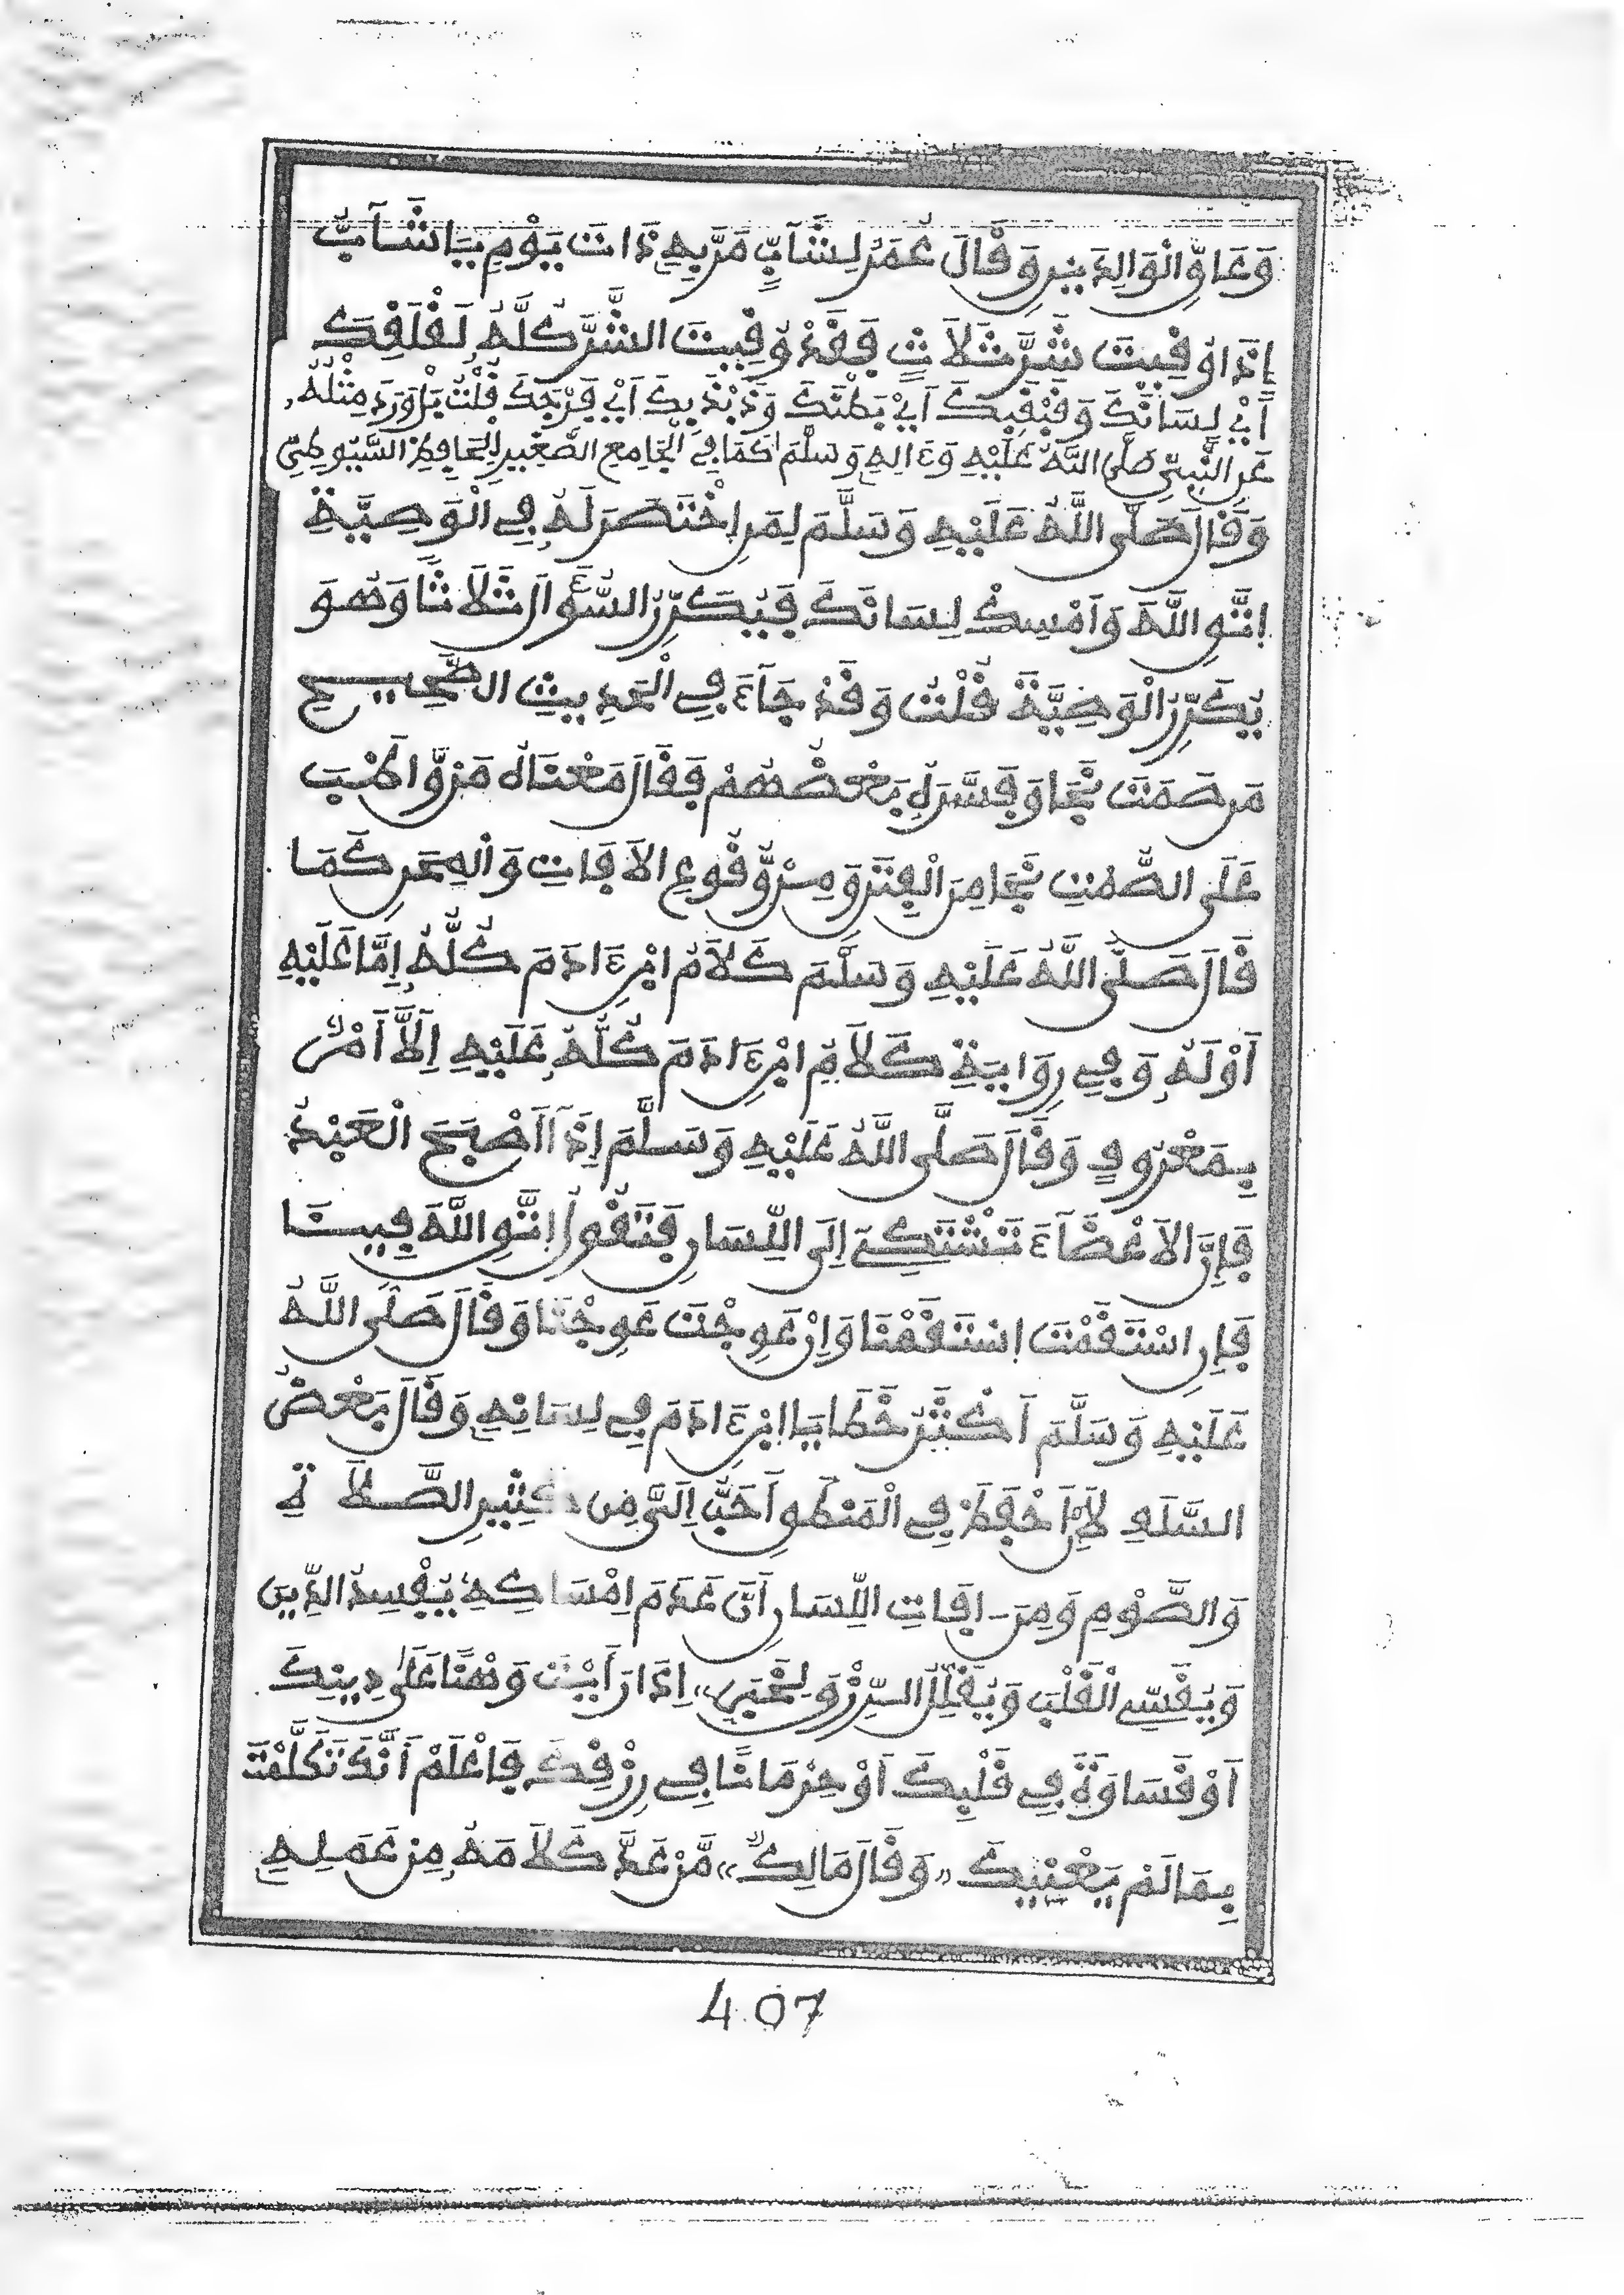 وَعَاقِّ الْوَالِدَيْنِ وَقَالَ عُمَرُ لِشَآبٍّ مَرَّ بِهِ ذَاتَ يَوْمٍ يَا شَآبُّ
إِذَا وُقِيتَ شَرَّ ثَلَاثٍ فَقَدْ وُقِيتَ الشَّرَّ كُلَّهُ لَقْلَقِكَ
أَيْ لِسَانَكَ وَقَبْقَبِكَ أَيْ بَطْنَكَ وَذَبْذَبِكَ أَيْ فَرْجَكَ قُلْتُ بَلْ وَرَدَ مِثْلُهُ،
عَنِ النَّبِيِّ صَلَّى اللَّهُ عَلَيْهِ وَءَالِهِ وَسَلَّمَ كَمَا فِي الْجَامِعِ الصَّغِيرِ لِلْحَافِظِ السَّيُوطِيِّ
وَقَالَ صَلَّى اللَّهُ عَلَيْهِ وَسَلَّمَ لِمَنِ اخْتَصَرَ لَهُ فِي الْوَصِيَّةِ
اِتَّقِ اللَّهَ وَأَمْسِكْ لِسَانَكَ فَيُكَرِّرُ السُّؤَالَ ثَلَاثًا وَهُوَ
يُكَرِّرُ الْوَصِيَّةَ قُلْتُ وَقَدْ جَآءَ فِي الْحَدِيثِ الصَّحِيحِ
مَن صَمَتَ نَجَا وَفَسَّرَهُ بَعْضُهُمْ فَقَالَ مَعْنَاهُ مَنْ وَّاظَبَ
عَلَى الصَّمْتِ نَجَا مِنَ الْفِتَنِ وَمِنْ وُّقُوعِ الآفَاتِ وَالْمِحَنِ كَمَا
قَالَ صَلَّى اللَّهُ عَلَيْهِ وَسَلَّمَ كَلَامُ ابْنِ ءَادَمَ كُلُّهُ إِمَّا عَلَيْهِ
أَوْ لَهُ وَفِي رِوَايَةٍ كَلَامُ ابْنِ ءَادَمَ كُلُّهُ عَلَيْهِ إِلَّا أَمْرٌ
بِمَعْرُوفٍ وَقَالَ صَلَّى اللَّهُ عَلَيْهِ وَسَلَّمَ إِذَآ أَصْبَحَ الْعَبْدُ
فَإِنَّ الأَعْضَآءَ تَشْتَكِي إِلَى اللِّسَانِ فَتَقُولُ اِتَّقِ اللَّهَ فِينَا
فَإِنِ اسْتَقَمْتَ اِسْتَقَمْنَا وَإِنْ عَوِجْتَ عَوِجْنَا وَقَالَ صَلَّى اللَّهُ
عَلَيْهِ وَسَلَّمَ أَكْثَرُ خَطَايَا ابْنِ ءَادَمَ فِي لِسَانِهِ وَقَالَ بَعْضُ
السَّلَفِ لَأَنْ أَحْفَظَ فِي الْمَنْطِقِ أَحَبُّ إِلَيَّ مِن كَثِيرِ الصَّلَاةِ
وَالصَّوْمِ وَمِنَ ـافَاتِ اللِّسَانِ أَنَّ عَدَمَ إِمْسَاكِهِ يُفْسِدُ الدِّينَ
وَيُقَسِّي الْقَلْبَ وَيُقَلِّلُ الرِّزْقَ لِخَبَرِ «إِذَا رَأَيْتَ وَهْنًا عَلَى دِينِكَ
أَوْ قَسَاوَةً فِي قَلْبِكَ أَوْ حِرْمَانًا فِي رِزْقِكَ فَاعْلَمْ أَنَّكَ تَكَلَّمْتَ
بِمَا لَمْ يَعْنِيكَ» وَقَالَ مَالِكٌ «مَنْ عَدَّ كَلَامَهُ مِنْ عَمَلِهِ
407